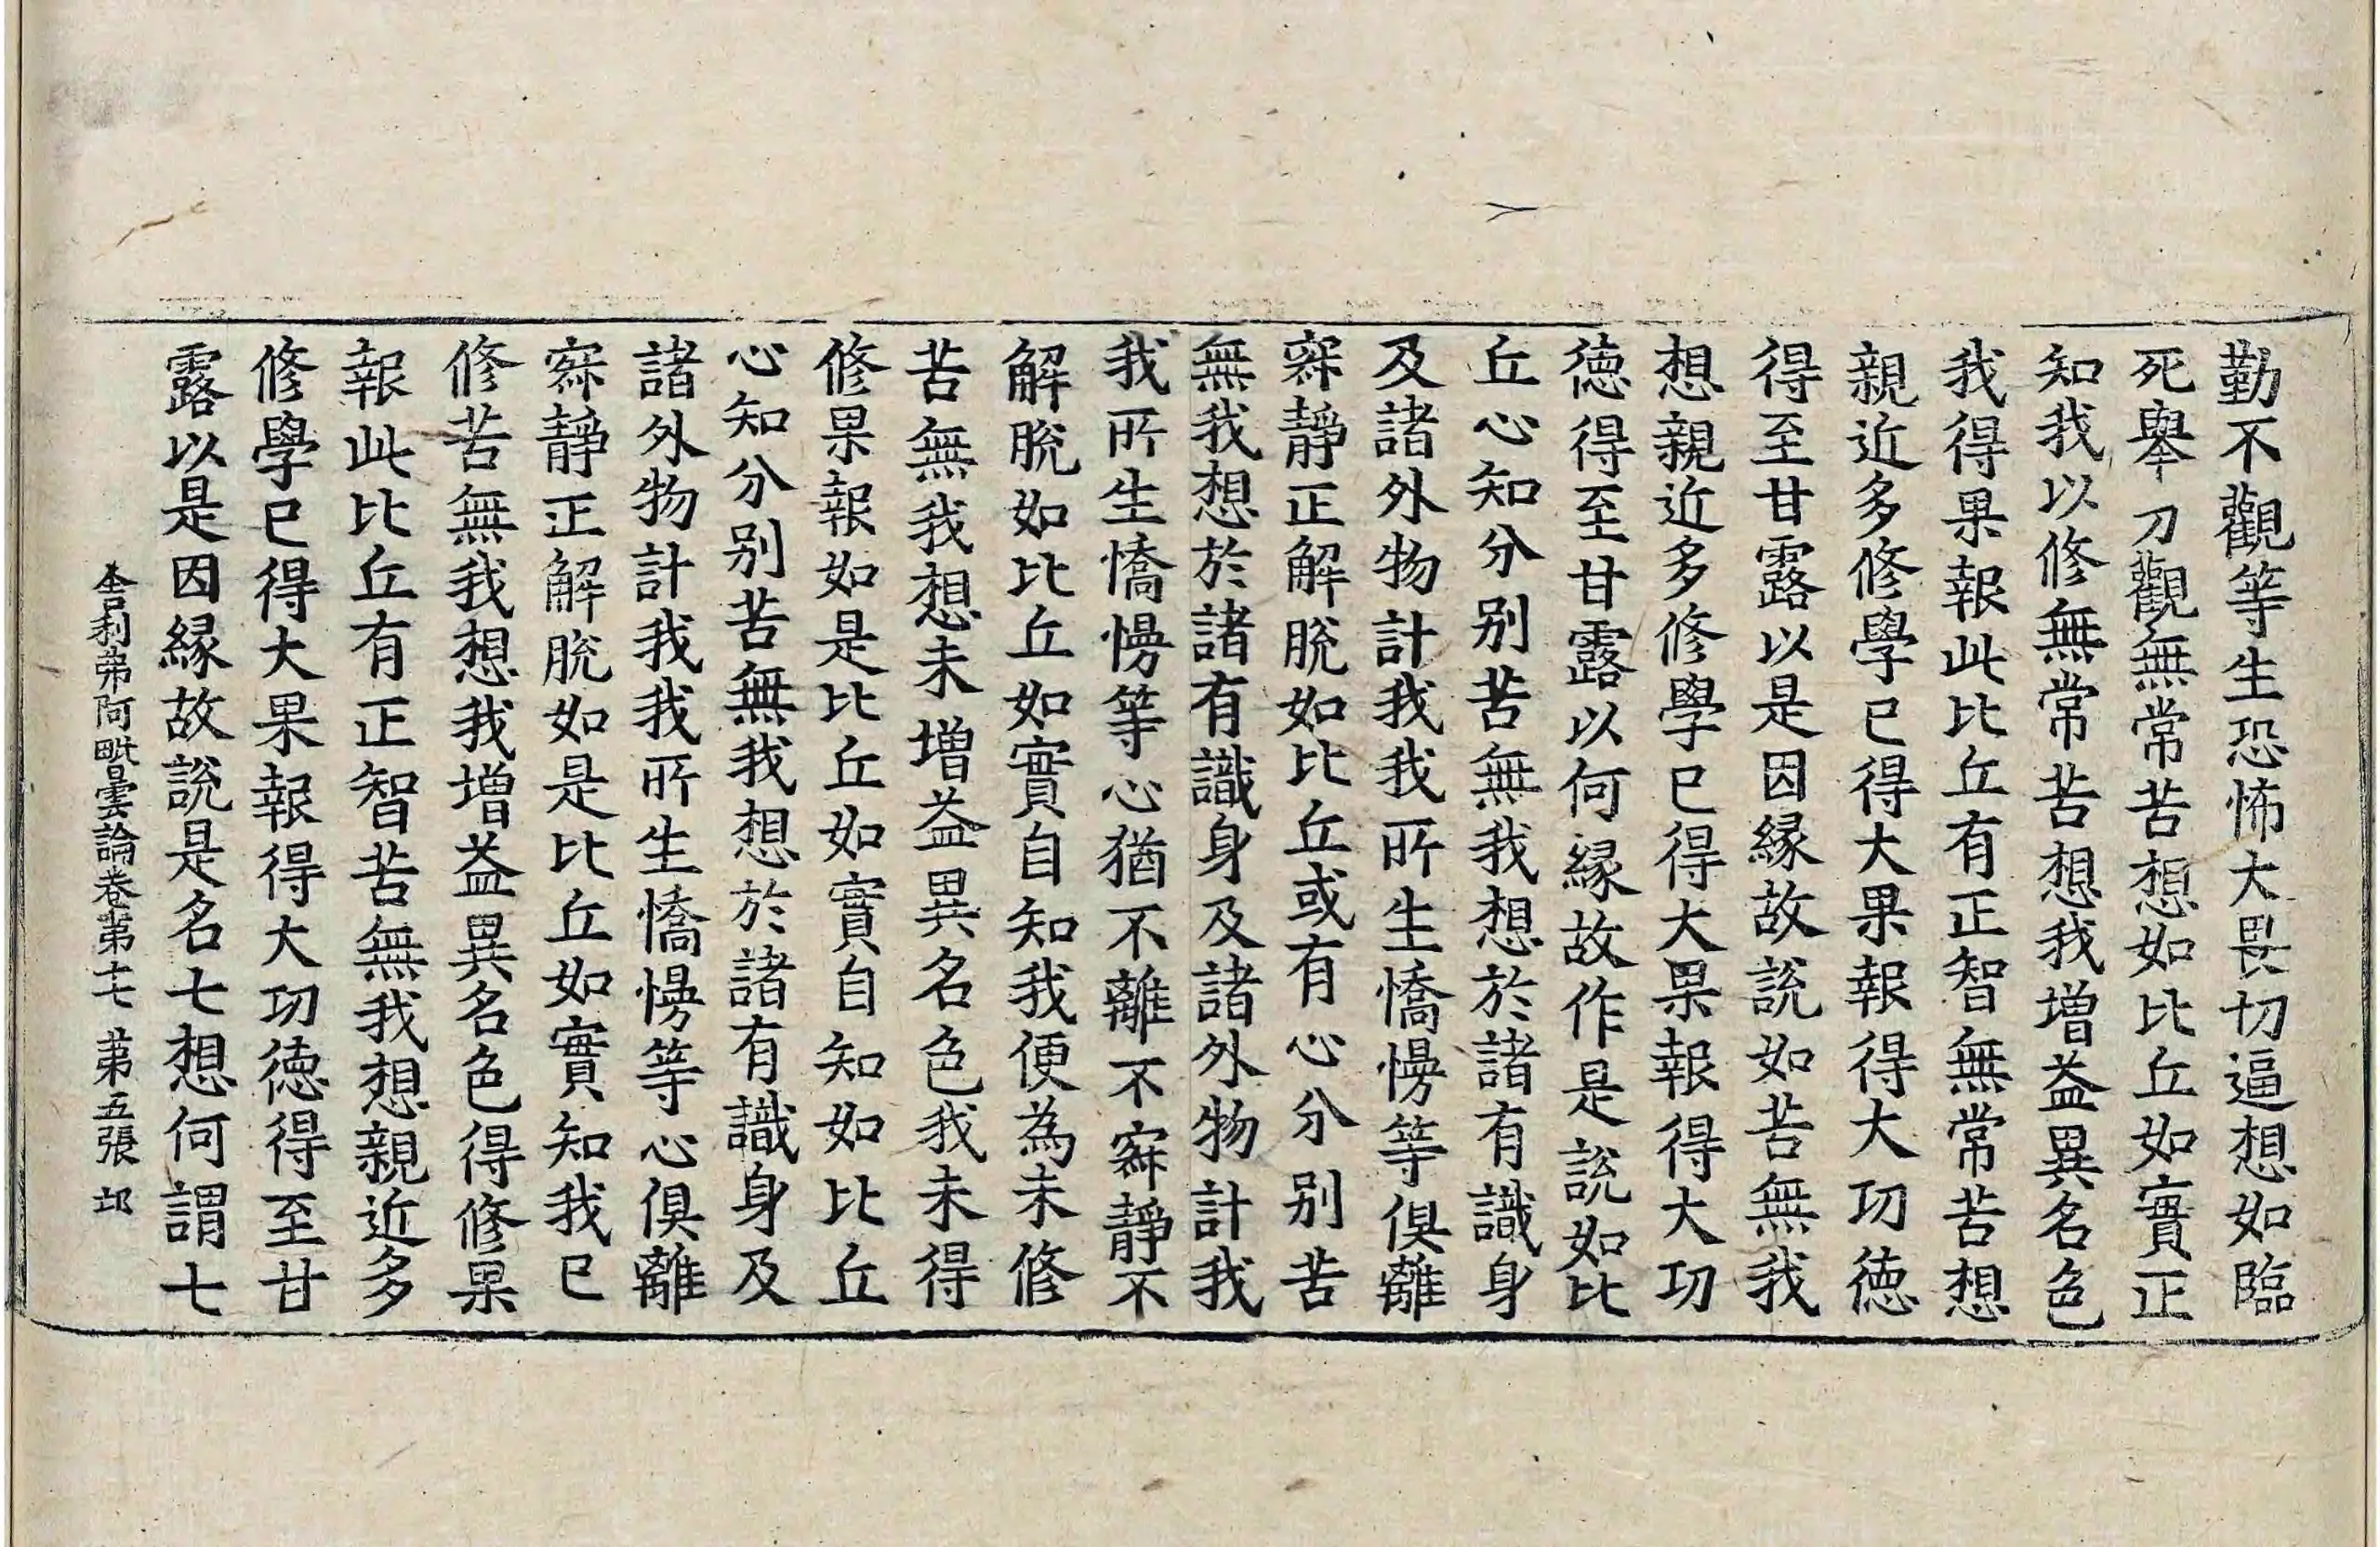 勤不觀等生恐怖大畏切逼想如臨
死舉刀觀無常苦想如比丘如實正
知我以修無常苦想我增益異名色
我得果報此比丘有正智無常苦想
親近多修學已得大果報得大功德
得至甘露以是因緣故說如苦無我
想親近多修學已得大果報得大功
德得至甘露以何緣故作是說如比
丘心知分别苦無我想於諸有識身
及諸外物計我我所生憍慢等俱離
寂靜正解脫如比丘或有心分别苦
無我想於諸有識身及諸外物計我
我所生憍慢等心猶不離不寂靜不
解脫如比丘如實自知我便為未修
苦無我想未增益異名色我未得
修果報如是比丘如實自知如比丘
心知分别苦無我想於諸有識身及
諸外物計我我所生憍慢等心俱離
寂靜正解脫如是比丘如實知我已
修苦無我想我增益異名色得修果
報此比丘有正智苦無我想親近多
修學已得大果報得大功德得至甘
露以是因緣故說是名七想何謂七
舍利弗阿毗曇論卷第十七 第五張